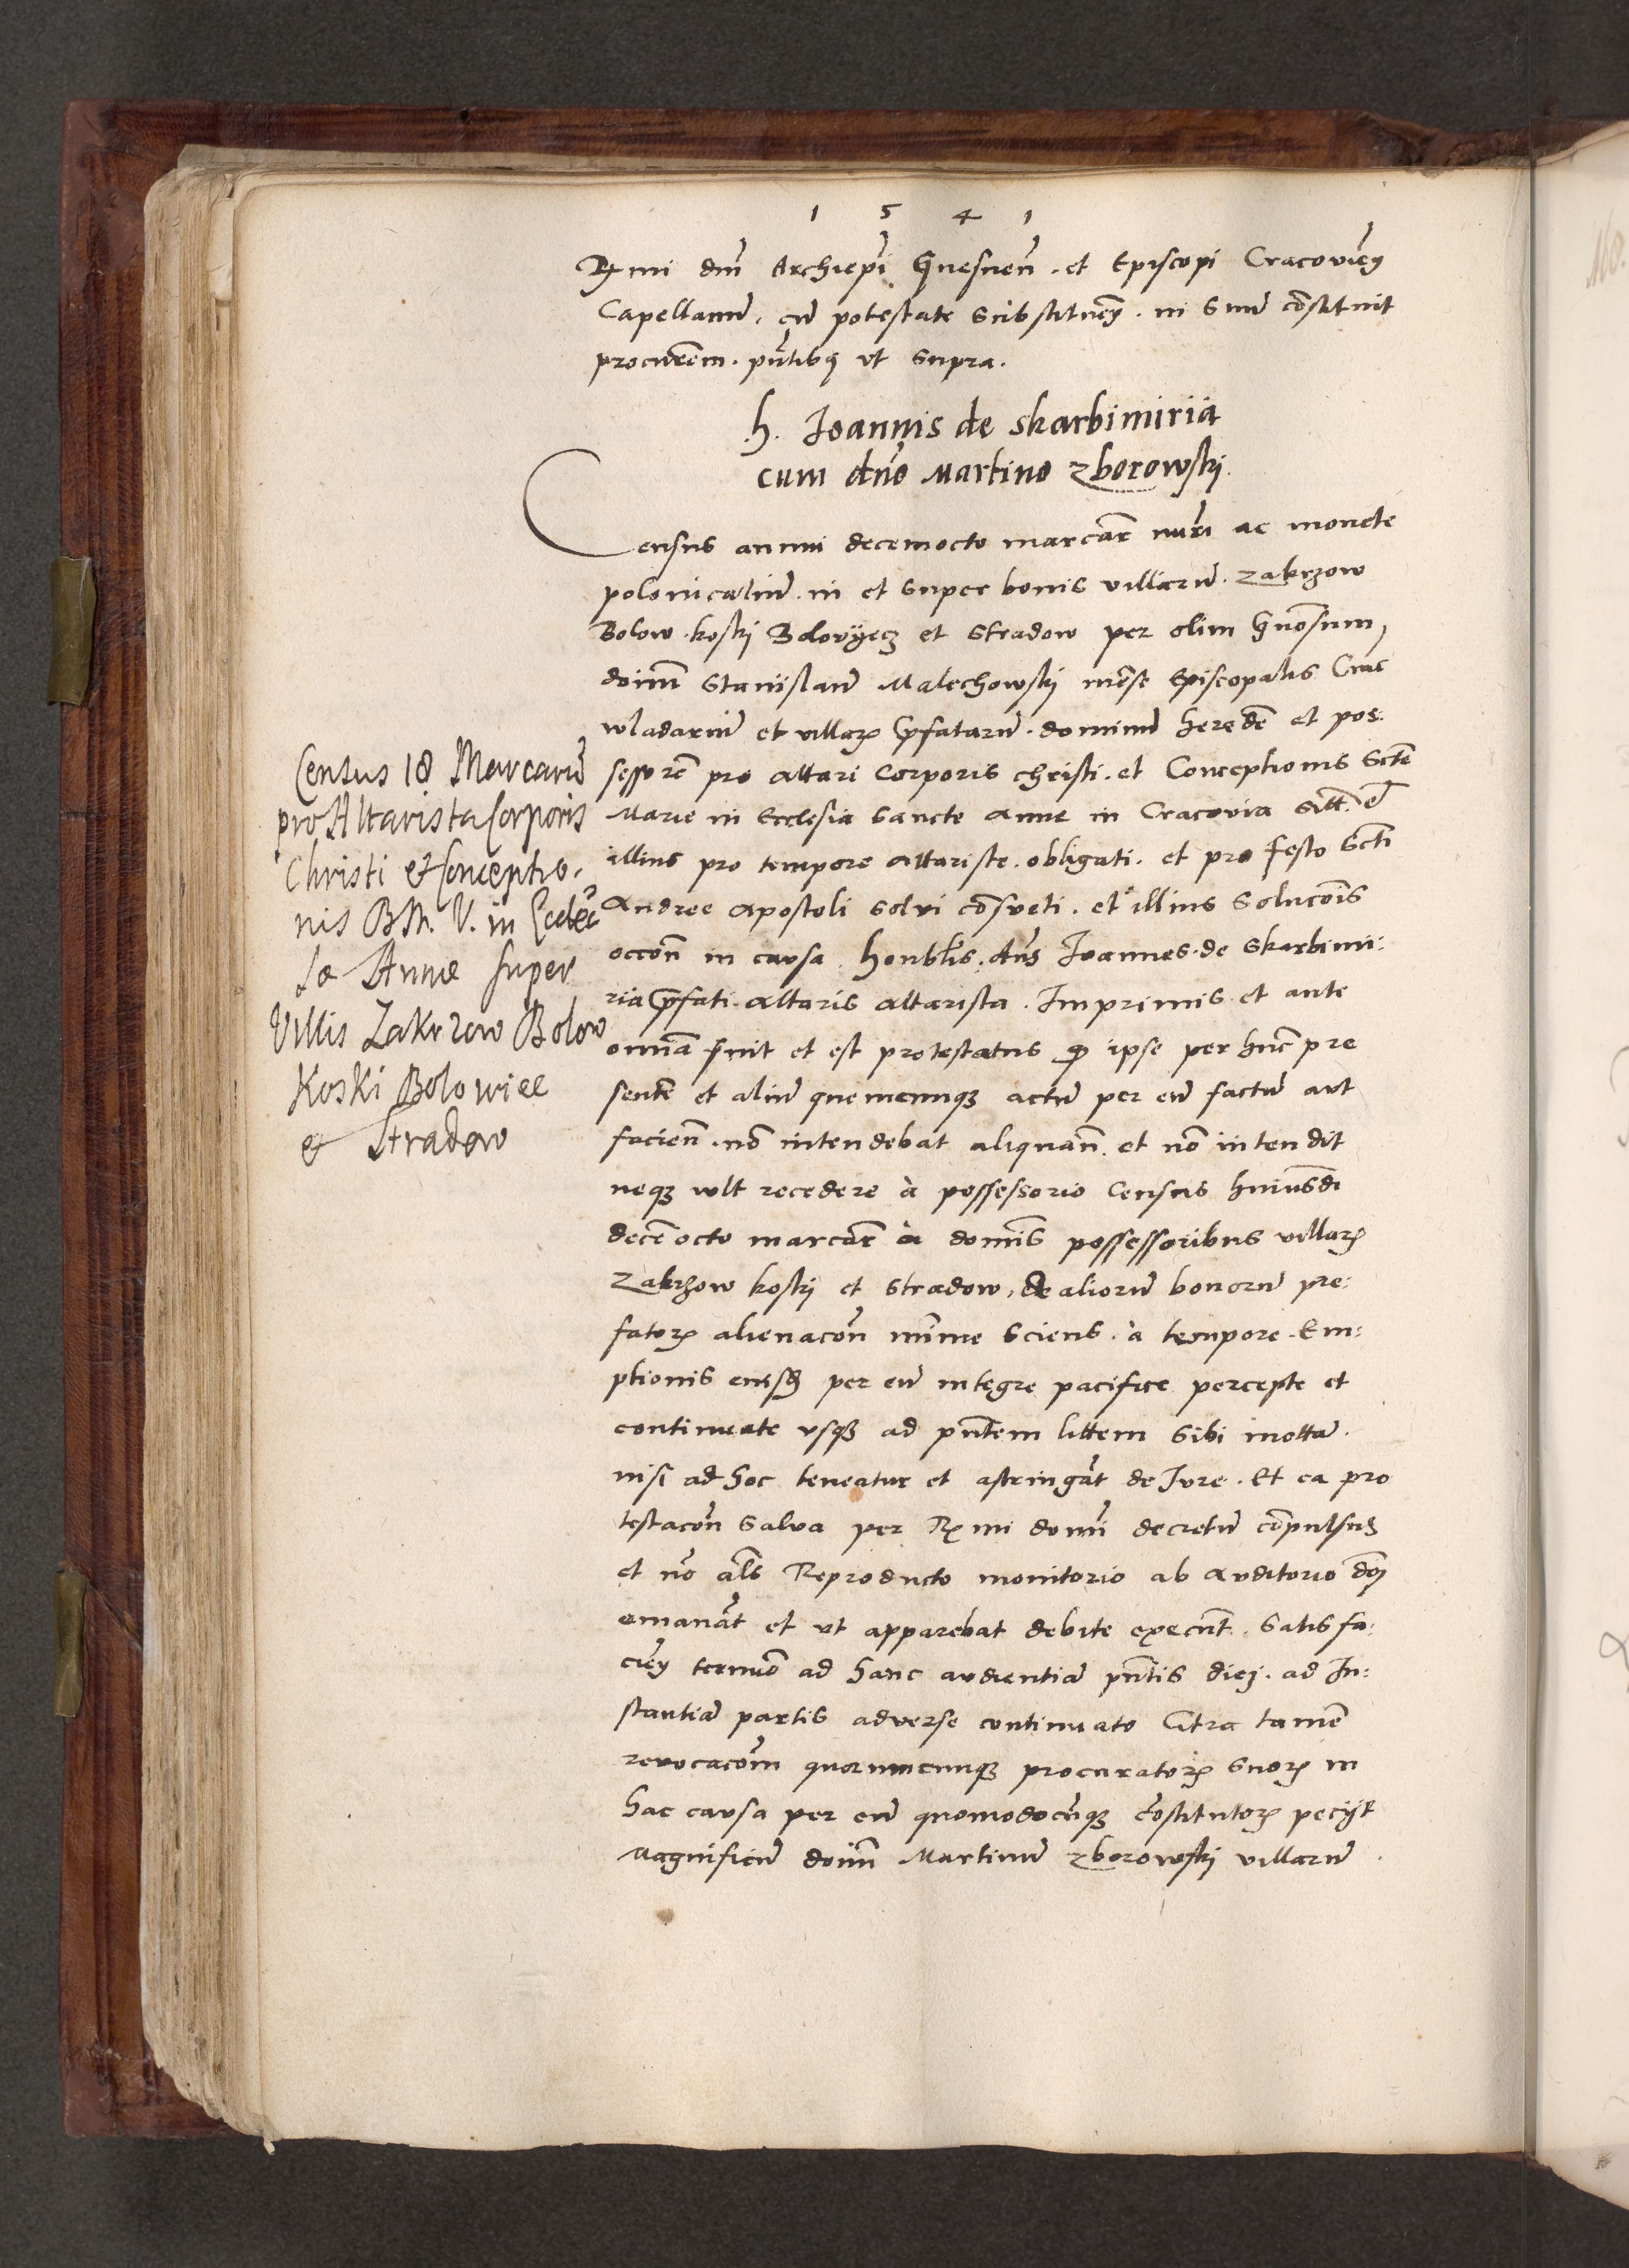 1 5 4 1
Rmi dni Archiepi Gnesnen. et Episcopi Cracovien
Capellanu, cu potestate substituen. in suu costituit
procurem. pntibq ut supra.
h. Ioannis de skarbimiria
cum dno Martino zborowskj.
Census annui decemocto marcar nuri ac monete
polonicaliu. in et super bonis villaru. zakrzow
Bolow. koskj Bolowyecz et Stradow per olim Gnosum,
doim Stanislau Malechowskj mense Episcopalis Crac
wladariu et villar pfataru. dominu herede et pos:
sessore pro altari Corporis christi. et Conceptionis Scte
Marie in Ecclesia Sancte Anne in Cracovia sitt. e
illius pro tempore altariste. obligati. et pro festo Scti
Andree Apostoli solvi cosueti. et illius solucois
occon in causa. honblis. dns Ioannes de skarbimi:
ria pfati. altaris altarista. Imprimis et ante
omnia fuit et est protestatus q ipse per hunc pre
sente et aliu quemcunqz actu per eu factu aut
facien. no intendebat aliquan. et no intendit
neqz vult recedere à possessorio Census huiusdi
dece octo marcar à domis possessoribus villar
zakrzow koskj et Stradow, de alioru bonoru pre:
fator alienacon mime sciens. à tempore. Em:
ptionis eiusd per eu integre pacifice percepte et
continuate usqz ad pntem littem sibi motta.
nisi ad hoc teneatur et astringat de Iure. Et ea pro
testacon salva per Rmi domi decretu copulsus
et no als Reproducto monitorio ab auditorio doi
emanat et ut apparebat debite execut. satisfa:
cien termo ad hanc audientia pntis diej. ad In:
stantia partis adverse continuato Citra tame
revocacom quorumcunqz procurator suor in
hac causa per eu quomodocuqz costitutor pecijt
Magnificu doim Martinu zborowskj villaru
Census 18 Marcaru
pro Altarista Corporis
Christi et Conceptio.
nis BM. V. in Eccles
Sae Annae super
Villis Zakrzow Bolow
Koski Bolowiec
et Stradow